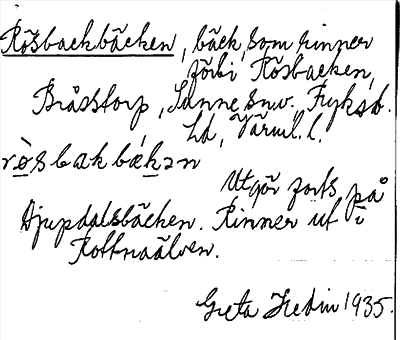 Rösbackbäcken, bäck, som rinner
förbi Rösbacken,
Bråsstorp, Sunne snv. Fryksd.
hd, Värml. l.
rø̀sbakbækən
Utgör forts på
Djupdalsbäcken. Rinner ut i
Rottnaälven.
Greta Hedin 1935.